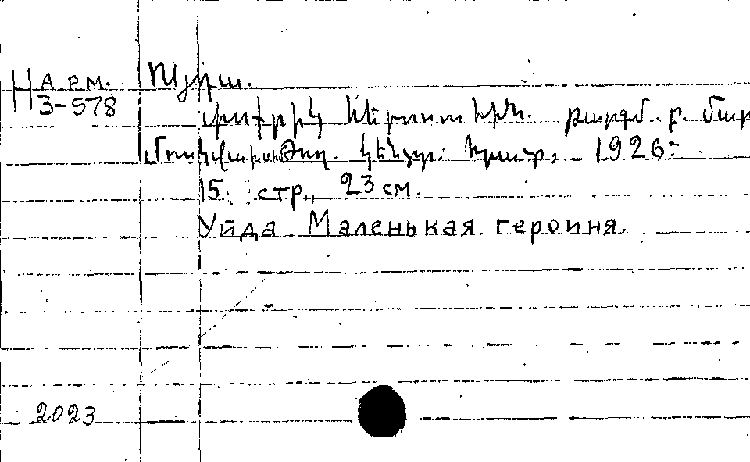 Н арм.
3-578
Ույդա.
փոքրիկ հերոսուհին. թարգմ.
Մոսկվա կենտր. հրատ., 1926:
15 стр., 23 см.
Уйда Маленькая героиня.
2023